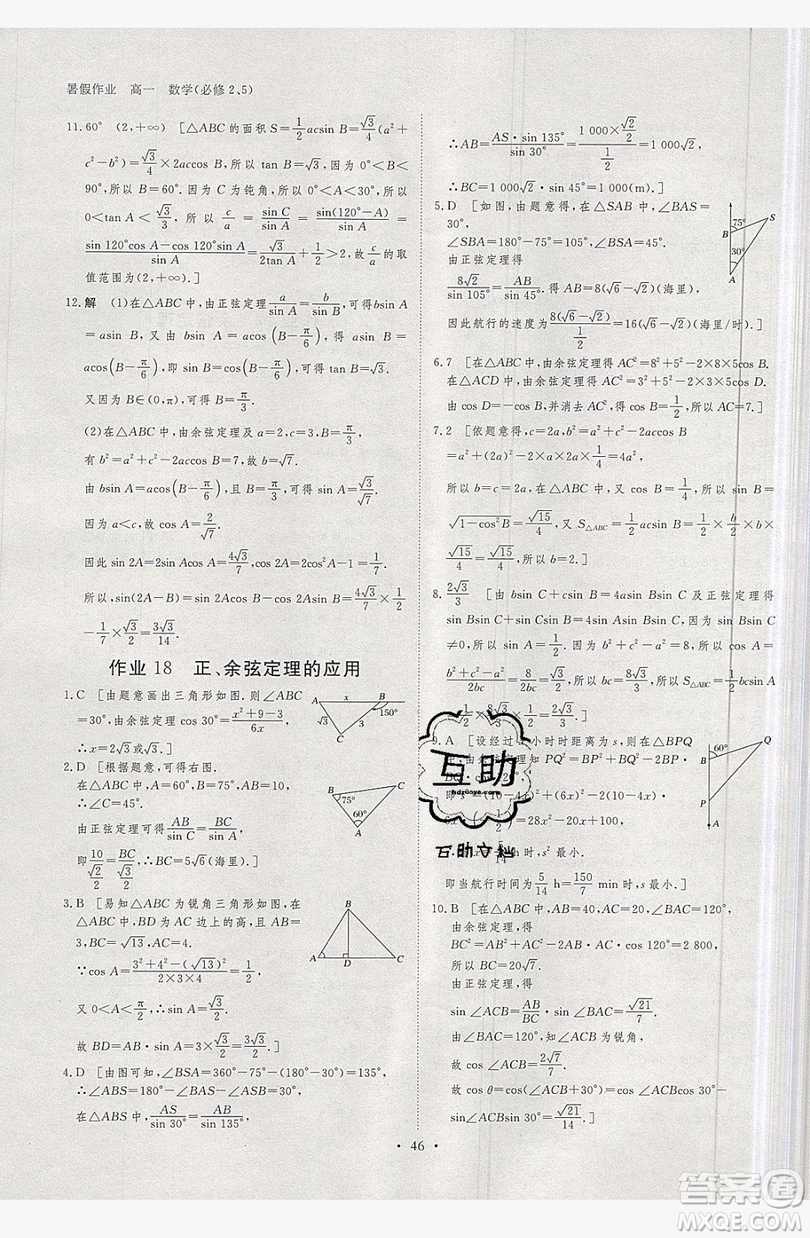 暑假作业 高一 数学(必修2、5)
11.60° (2,+∞) [△ABC的面积S=1/2 acsin B=√3/4(a²+
c²-b²)=√3/4×2accos B,所以 tan B=√3,因为0°<B<
90°,所以B=60°.因为C为钝角,所以0°<A<30°,所以
0<tan A<√3/3,所以 c/a=sin C/sin A=sin(120°-A)/sin A=
(sin 120°cos A-cos 120°sin A)/sin A=√3/(2tan A)+1/2>2,故 c/a 的取
值范围为(2,+∞).]
12.解 (1)在△ABC中,由正弦定理 a/sin A=b/sin B,可得bsin A
=asin B,又由 bsin A=acos(B-π/6),得 asin B=
acos(B-π/6),即 sin B=cos(B-π/6),可得 tan B=√3.
又因为B∈(0,π),可得B=π/3.
(2)在△ABC中,由余弦定理及a=2,c=3,B=π/3,
有b²=a²+c²-2accos B=7,故b=√7.
由bsin A=acos(B-π/6),可得 sin A=√3/√7.
因为a<c,故cos A=2/√7.
因此 sin 2A=2sin Acos A=4√3/7,cos 2A=2cos²A-1=1/7.
所以,sin(2A-B)=sin 2Acos B-cos 2Asin B=4√3/7×1/2
-1/7×√3/2=3√3/14.
作业18 正、余弦定理的应用
1.C [由题意画出三角形如图.则∠ABC
=30°,由余弦定理 cos 30°=(x²+9-3)/6x,
∴x=√3或2√3.]
A x B 150° √3 3 C
2.D [根据题意,可得右图.
在△ABC中,A=60°,B=75°,AB=10,
∴C=45°.
由正弦定理可得AB/sin C=BC/sin A,
即10/(√2/2)=BC/(√3/2),∴BC=5√6(海里).]
B 75° C 60° A
3.B [易知△ABC为锐角三角形,如图.在
△ABC中,BD为AC边上的高,且A
B=3,BC=√13,AC=4.
∵cos A=(3²+4²-(√13)²)/(2×3×4)=1/2,
又0<A<π/2,∴sin A=√3/2.
故BD=AB·sin A=3×√3/2=3√3/2.]
B A D C
4.D [由图可知,∠BSA=360°-75°-(180°-30°)=135°,
∴∠ABS=180°-∠BAS-∠BSA=30°,
在△ABS中,AS/sin 30°=AB/sin 135°,
∴AB=AS·sin 135°/sin 30°=(1 000×√2/2)/(1/2)=1 000√2.
∴BC=1 000√2·sin 45°=1 000(m).]
5.D [如图,由题意得,在△SAB中,∠BAS=
30°,
∠SBA=180°-75°=105°,∠BSA=45°.
由正弦定理得
8√2/sin 105°=AB/sin 45°,得AB=8(√6-√2)(海里),
因此航行的速度为8(√6-√2)/(1/2)=16(√6-√2)(海里/时).]
S 75° B 30° A
6.7 [在△ABC中,由余弦定理得 AC²=8²+5²-2×8×5cos B.
在△ACD中,由余弦定理得 AC²=3²+5²-2×3×5cos D.
由 cos D=-cos B,并消去AC²,得AC=7.]
7.2 [依题意得,c=2a,b²=a²+c²-2accos B
=a²+(2a)²-2×a×2a×1/4=4a²,
所以b=c=2a,在△ABC中,由cos B=1/4,所以 sin B=
√(1-cos²B)=√15/4,又S△ABC=1/2acsin B=1/2×b/2×b×
√15/4=√15/4,所以b=2.]
8.2√3/3 [由 bsin C+csin B=4asin Bsin C及正弦定理得
sin Bsin C+sin Csin B=4sin Asin Bsin C,又sin Bsin C
≠0,所以 sin A=1/2.由余弦定理得 cos A=(b²+c²-a²)/2bc=
8/2bc=4/bc=√3/2,所以 bc=8√3/3,所以S△ABC=1/2bcsin A=
1/2×8√3/3×1/2=2√3/3.]
9.A [设经过 小时时距离为s,则在△BPQ
中,由余弦定理知PQ²=BP²+BQ²-2
BP·BQ·
即s²=(10-4x)²+(6x)²-2(10-4x)×6x
=28x²-20x+100,
h时,s²最小.
即当航行时间为5/14 h=150/7 min时,s²最小.]
B 60° Q P A
10.B [在△ABC中,AB=40,AC=20,∠BAC=120°,
由余弦定理得
BC²=AB²+AC²-2AB·ACcos 120°=2 800,
所以BC=20√7.
由正弦定理得
sin∠ACB=AB/BC·sin∠BAC=√21/7.
由∠BAC=120°,知∠ACB为锐角,
故 cos∠ACB=2√7/7.
故 cos θ=cos(∠ACB+30°)=cos∠ACBcos 30°-
sin∠ACBsin 30°=√21/14.]
互助
hdzuoye.com
互助文档
• 46 •
答案圈
MXQE.COM